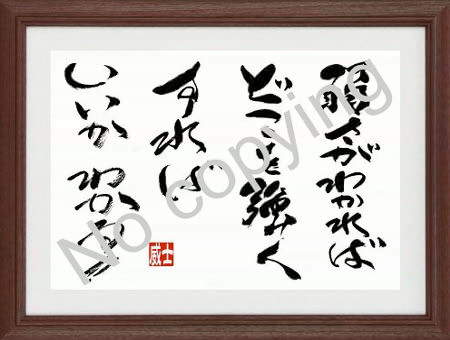 弱さがわかれば
どこを強く
すれば
いいか わかる
威士
No copying